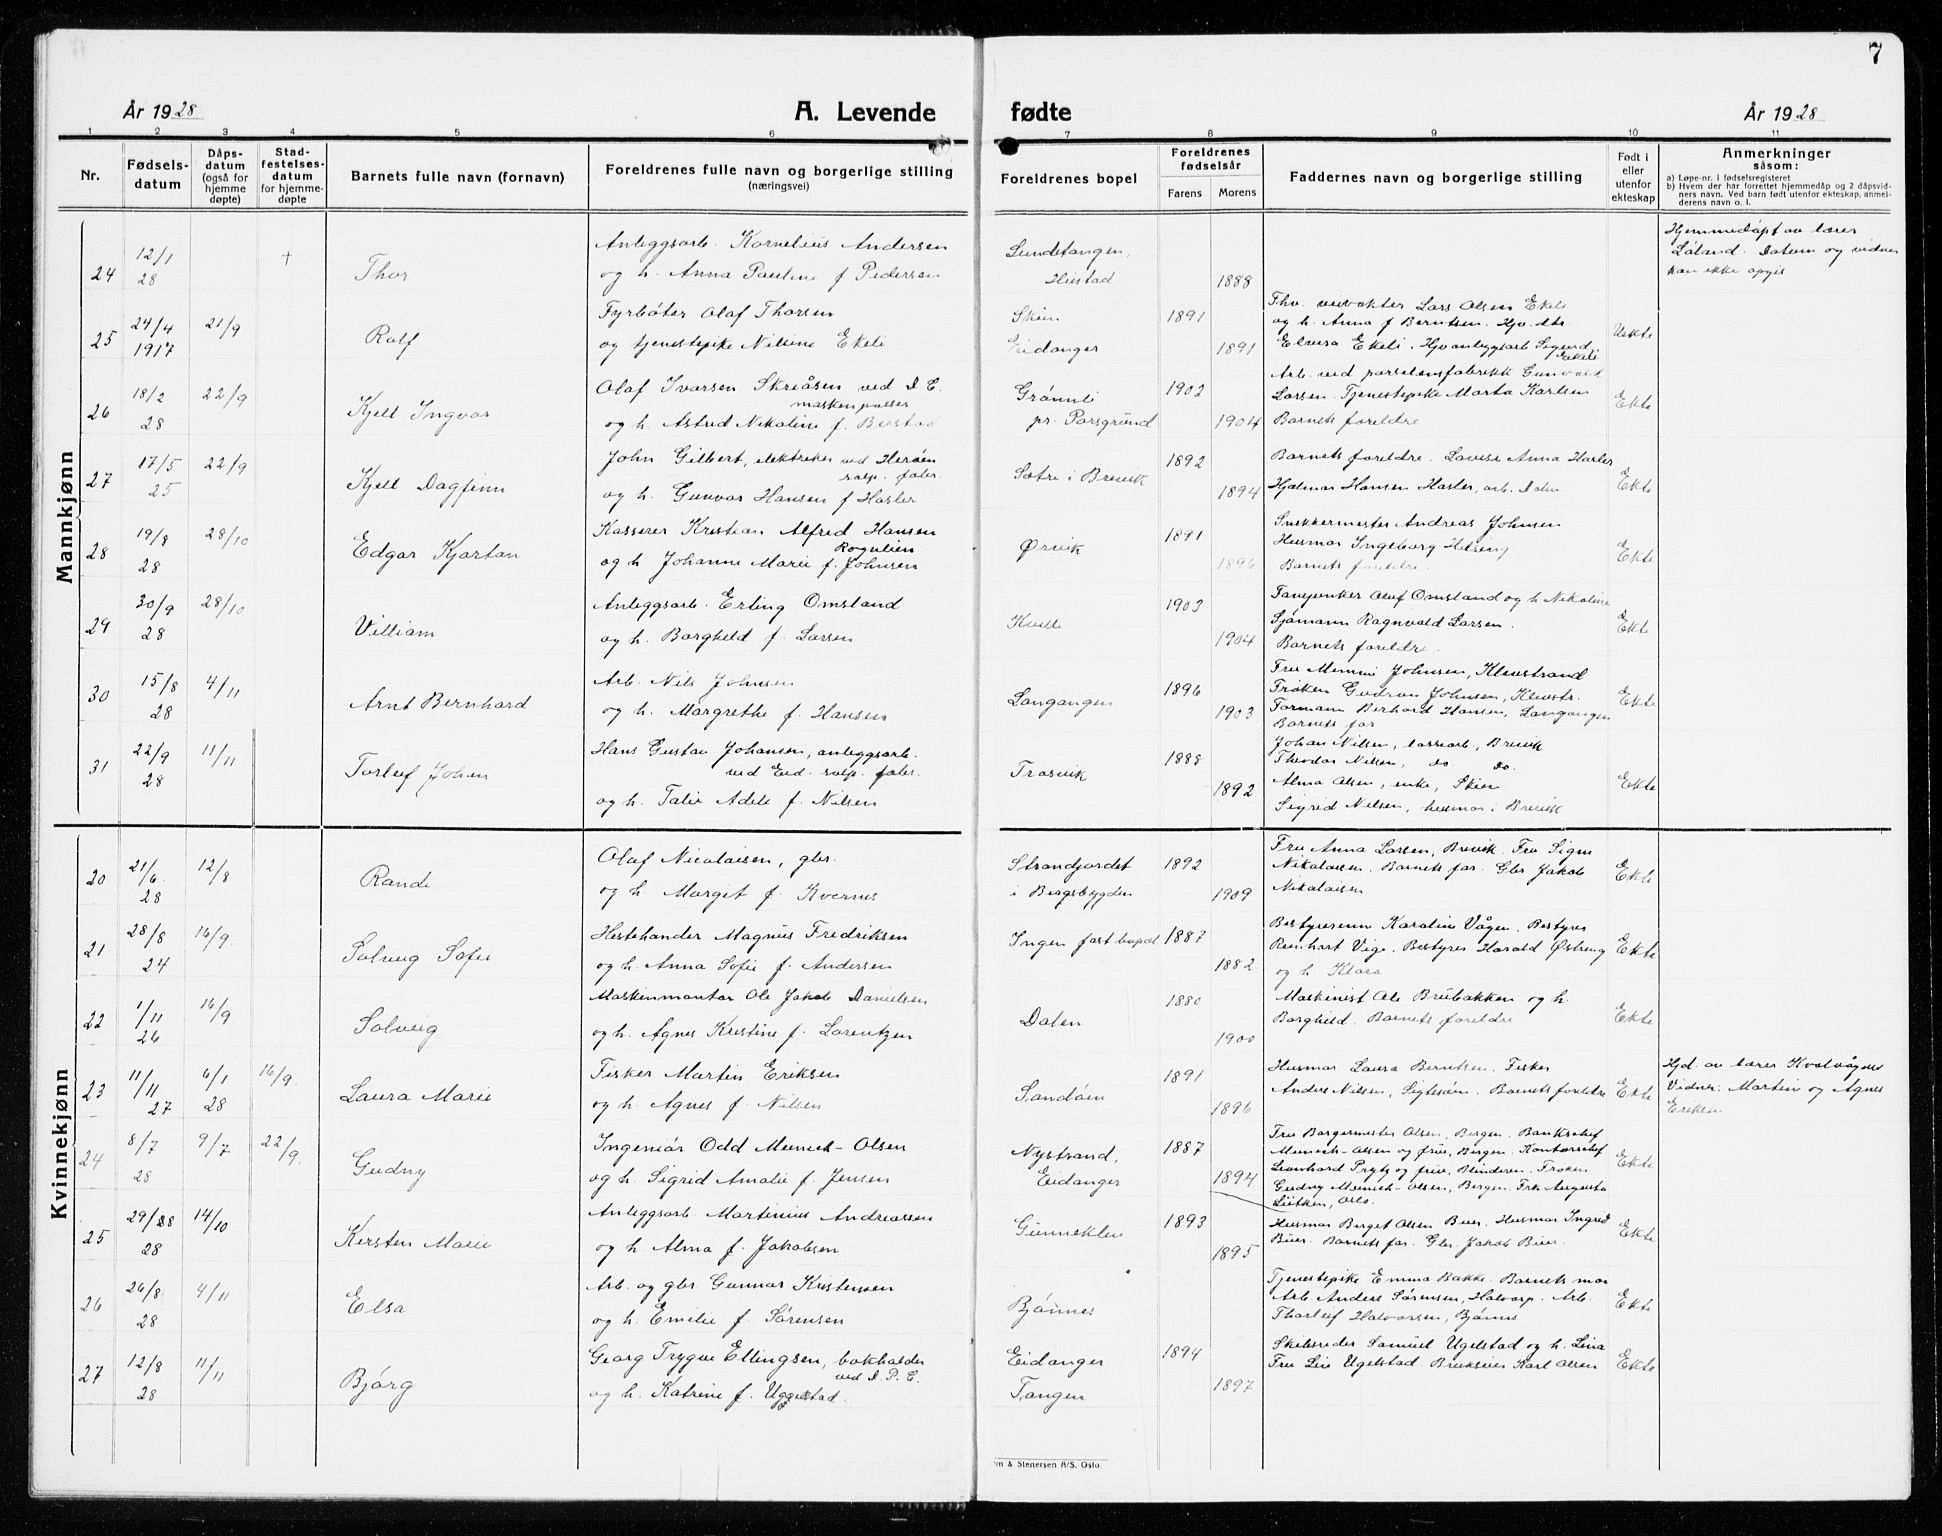 7
År 1928 A. Levende fødte År 1928
1 2 3 4 5 6 7 8 9 10 11
Nr. Fødselsdatum Dåpsdatum (også for hjemmedøpte) Stadfestelsesdatum for hjemmedøpte Barnets fulle navn (fornavn) Foreldrenes fulle navn og borgerlige stilling (næringsvei) Foreldrenes bopel Foreldrenes fødselsår Farens Morens Faddernes navn og borgerlige stilling Født i eller utenfor ekteskap Anmerkninger såsom:
a) Løpe-nr. i fødselsregisteret
b) Hvem der har forrettet hjemmedåp og 2 dåpsvidners navn. Ved barn født utenfor ekteskap, anmelderens navn o. l.
Mannkjønn
24 12/1 28 † Thor
Anleggsarb. Kornelius Andersen
og h. Anna Pauline f Pedersen
Lundstangen,
Heistad 1888
Hjemmedøpt av lærer
Låland. Datum og vidner
kan ikke opgis
25 24/4 1917 21/9 Rolf
Fyrbøter Olaf Thorsen
og tjenestepike Nilsine Ekeli
Skien 1891
Eidanger 1891
Fhv. veivokter Lars Olsen Ekeli
og h. Anna f Berntsen. Hjv. dtr.
Elvira Ekeli. Hjv anleggsarb Sigurd
Ekeli
Uekte
26 18/2 28 22/9 Kjell Ingvar
Olaf Ivarsen Skreåsen ved D. E.
maskinpasser
og h. Astrid Nikoline f.
Grønnli 1902
pr. Porsgrund 1904
Arb. ved porselensfabrikk Gunvald
Larsen. Tjenestepike Marta Karlsen
Barnets foreldre
Ekte
27 17/5 25 22/9 Kjell Dagfinn
John Gilbert, elektriker ved Herøen
salp. fabr.
og h. Gunvor Hansen f Hasler
Sætre i Brevik 1892 1894
Barnets foreldre. Lovise Anna Hasler
Hjalmar Hansen Hasler, arb. Dalen
Ekte
28 19/8 28 28/10 Edgar Kjartan
Kasserer Kristian Alfred Hansen
Rognlien
og h Johanne Marie f. Johnsen
Ørvik 1891 1896
Snekkermester Andreas Johnsen
Husmor Ingeborg Helsing
Barnets foreldre.
Ekte
29 30/9 28 28/10 Villiam
Anleggsarb. Erling Omsland
og h. Borghild f. Larsen
Kvelle 1903 1904
Fanejunker Olaf Omsland og h Nikoline
Sjømann Ragnvald Larsen.
Barnets foreldre.
Ekte
30 15/8 28 4/11 Arnt Bernhard
Arb. Nils Johnsen
og h. Margrethe f. Hansen
Langangen 1896 1903
Fru Minni Johnsen, Klevstrand
Frøken Gudrun Johnsen, Klevstr.
Formann Berhard Hansen, Langangen
Barnets far
Ekte
31 22/9 28 11/11 Torleif Johan
Hans Gustav Johansen, anleggsarb.
ved Eid. salp. fabr.
og h. Talie Adele f. Nilsen
Trosvik 1888 1892
Johan Nilsen, lossearb., Brevik
Theodor Nilsen, do. do.
Alma Olsen, enke, Skien
Sigrid Nilsen, husmor i Brevik
Ekte
Kvinnekjønn
20 21/6 28 12/8 Randi
Olaf Nicolaisen, gbr.
og h. Margit f. Kvernes
Strandjordet 1892
i Bergsbygden 1909
Fru Anna Larsen, Brevik. Fru Signe
Nikolaisen. Barnets far. Gbr Jakob
Nikolaisen
Ekte
21 28/8 24 16/9. Solveig Sofie
Hestehandler Magnus Fredriksen
og h. Anna Sofie f. Andersen
Ingen fast bopel 1887 1882
Bestyrerinn Karoline Vågen. Bestyrer
Reinhart Vige. Bestyrer Harald Østreng
og h Klara
Ekte
22 1/11 26 16/9 Solveig
Maskinmontør Ole Jakob Danielsen
og h. Agnes Kristine f. Lorentzen
Dalen 1880 1900
Maskinist Ole Brubakken og h.
Borghild. Barnets foreldre
Ekte
23 11/11 27 6/1 28 16/9. Laura Marie
Fisker Martin Eriksen
og h. Agnes f. Nilsen
Sandøen 1891 1896
Husmor Laura Berntsen. Fisker
Anders Nilsen, Sigtesøen. Barnets foreldre
Ekte
Hjd. av lærer Kvalvågnes
Vidner: Martin og Agnes
Eriksen
24 8/7 28 9/7 22/9. Gudny
Ingeniør Odd Munch-Olsen
og h. Sigrid Amalie f. Jensen
Nystrand, 1887
Eidanger 1894
Fru Borgermester Olsen, Bergen. Bankschef
Munch-Olsen og frue, Bergen. Kontorchef
Leonhard Prytz og frue, Blinderen. Frøken
Gudny Munch-Olsen, Bergen. Fru Augusta
Lütken, Oslo.
Ekte
25 29/28 28 14/10 Kirsten Marie
Anleggsarb. Martinius Andreassen
og h. Alma f. Jakobsen
Gunneklev 1893 1895
Husmor Berget Olsen Buer. Husmor Ingrid
Buer. Barnets far. Gbr. Jakob Buer.
Ekte
26 26/8 28 4/11 Elsa
Arb. og gbr. Gunnar Kristensen
og h. Emilie f. Sørensen
Bjønnes
Tjenestepike Emma Bakke. Barnets mor
Arb Anders Sørensen, Halvarp. Arb.
Thorleif Halvorsen, Bjønnes
Ekte
27 12/8 28 11/11 Bjørg
Georg Trygve Ellingsen, bokholder
ved D. P. E.
og h. Katrine f. Uggelstad.
Eidanger 1894
Tangen 1897
Skibsreder Samuel Ugelstad og h. Lina
Fru Livi Ugelstad Brukseier Karl Olsen
Ekte
m & Stenersen A/S. Oslo.